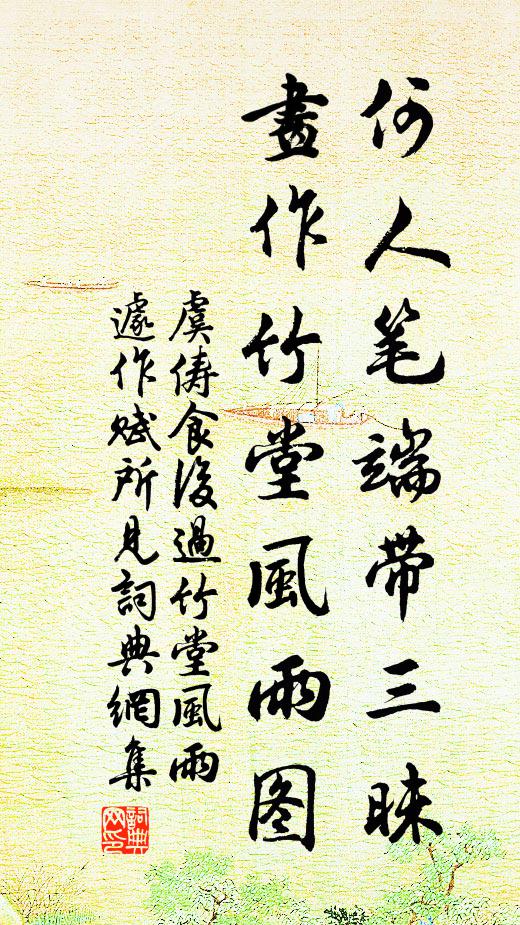 何人笔端带三昧
畫作竹堂風雨图
虞俦食後過竹堂風雨
遽作赋所見詞典網集
詞典网印